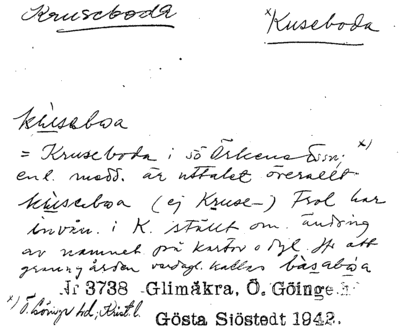 Kruseboda
x Kuseboda
kùsəbωa
= Kruseboda i sö Örkeneds sn; x)
enl. medd. är uttalet överallt
kùsəbωa (ej Kruse-) Frol har
invån. i K. ställt om ändring
av namnet på kartor o dyl. att
granngården vardagl. kallas bàsabωa
Nr 3738 Glimåkra, Ö. Göinge h
x) Ö. Göinge hd; Krist. l.
Gösta Sjöstedt 1942.